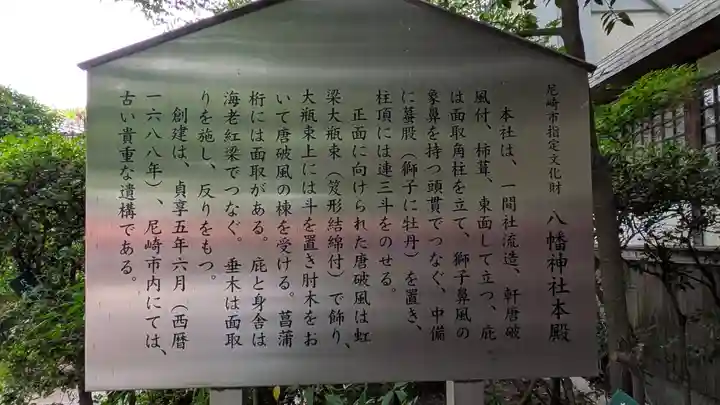 尼崎市指定文化財 八幡神社本殿
本社は、一間社流造、軒唐破
風付、柿葺、東面して立つ、庇
は面取角柱を立て、獅子鼻風の
象鼻を持つ頭貫でつなぐ、中備
に蟇股（獅子に牡丹）を置き、
柱頂には連三斗をのせる。
正面に向けられた唐破風は虹
梁大瓶束（笈形結綿付）で飾り、
大瓶束上には斗を置き肘木をお
いて唐破風の棟を受ける。菖蒲
桁には面取がある。庇と身舎は
海老紅梁でつなぐ。垂木は面取
りを施し、反りをもつ。
創建は、貞享五年六月（西暦
一六八八年）、尼崎市内にては、
古い貴重な遺構である。